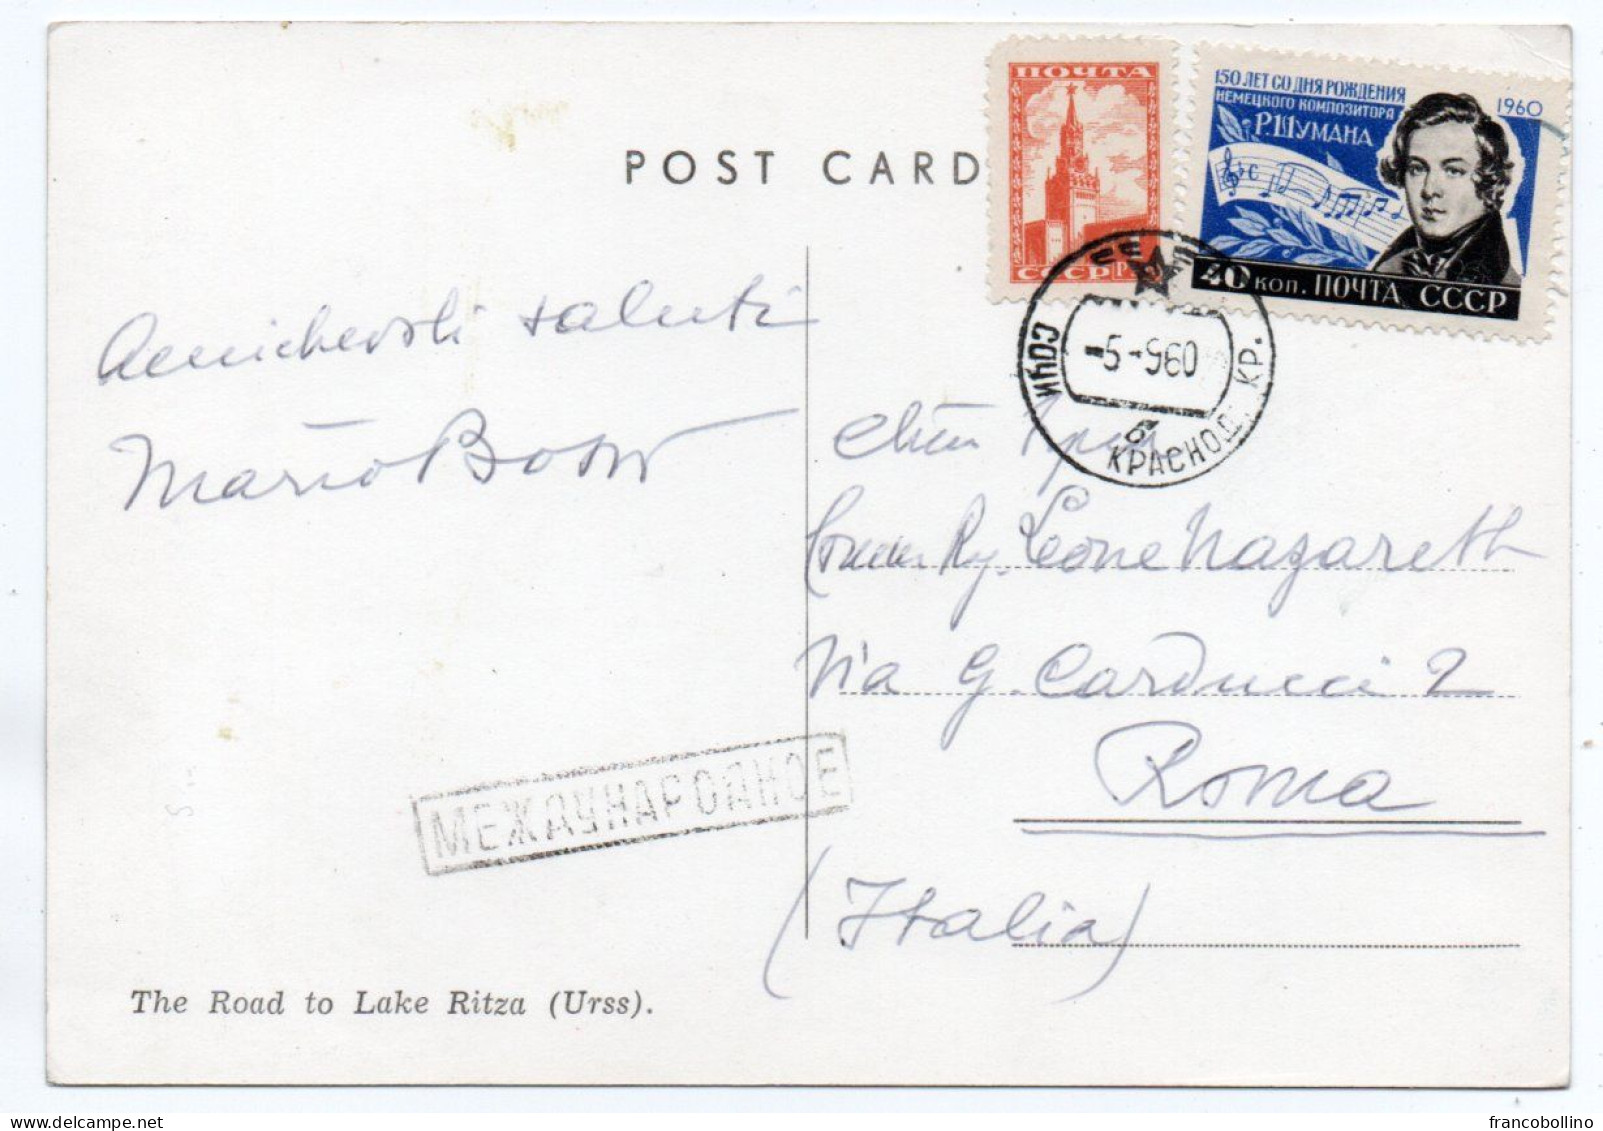 POST CARD
ПОЧТА
1
СССР Р.
150 ЛЕТ СО ДНЯ РОЖДЕНИЯ
НЕМЕЦКОГО КОМПОЗИТОРА
Р. ШУМАНА
1960
40 КОП. ПОЧТА СССР
СССР
СОЧИ
-5-960
б
КРАСНОД. КР.
Amichevoli saluti
Mario
Leone Nazareth
Via G. Carducci 2
Roma
(Italia)
МЕЖДУНАРОДНОЕ
The Road to Lake Ritza (Urss).
francobollino